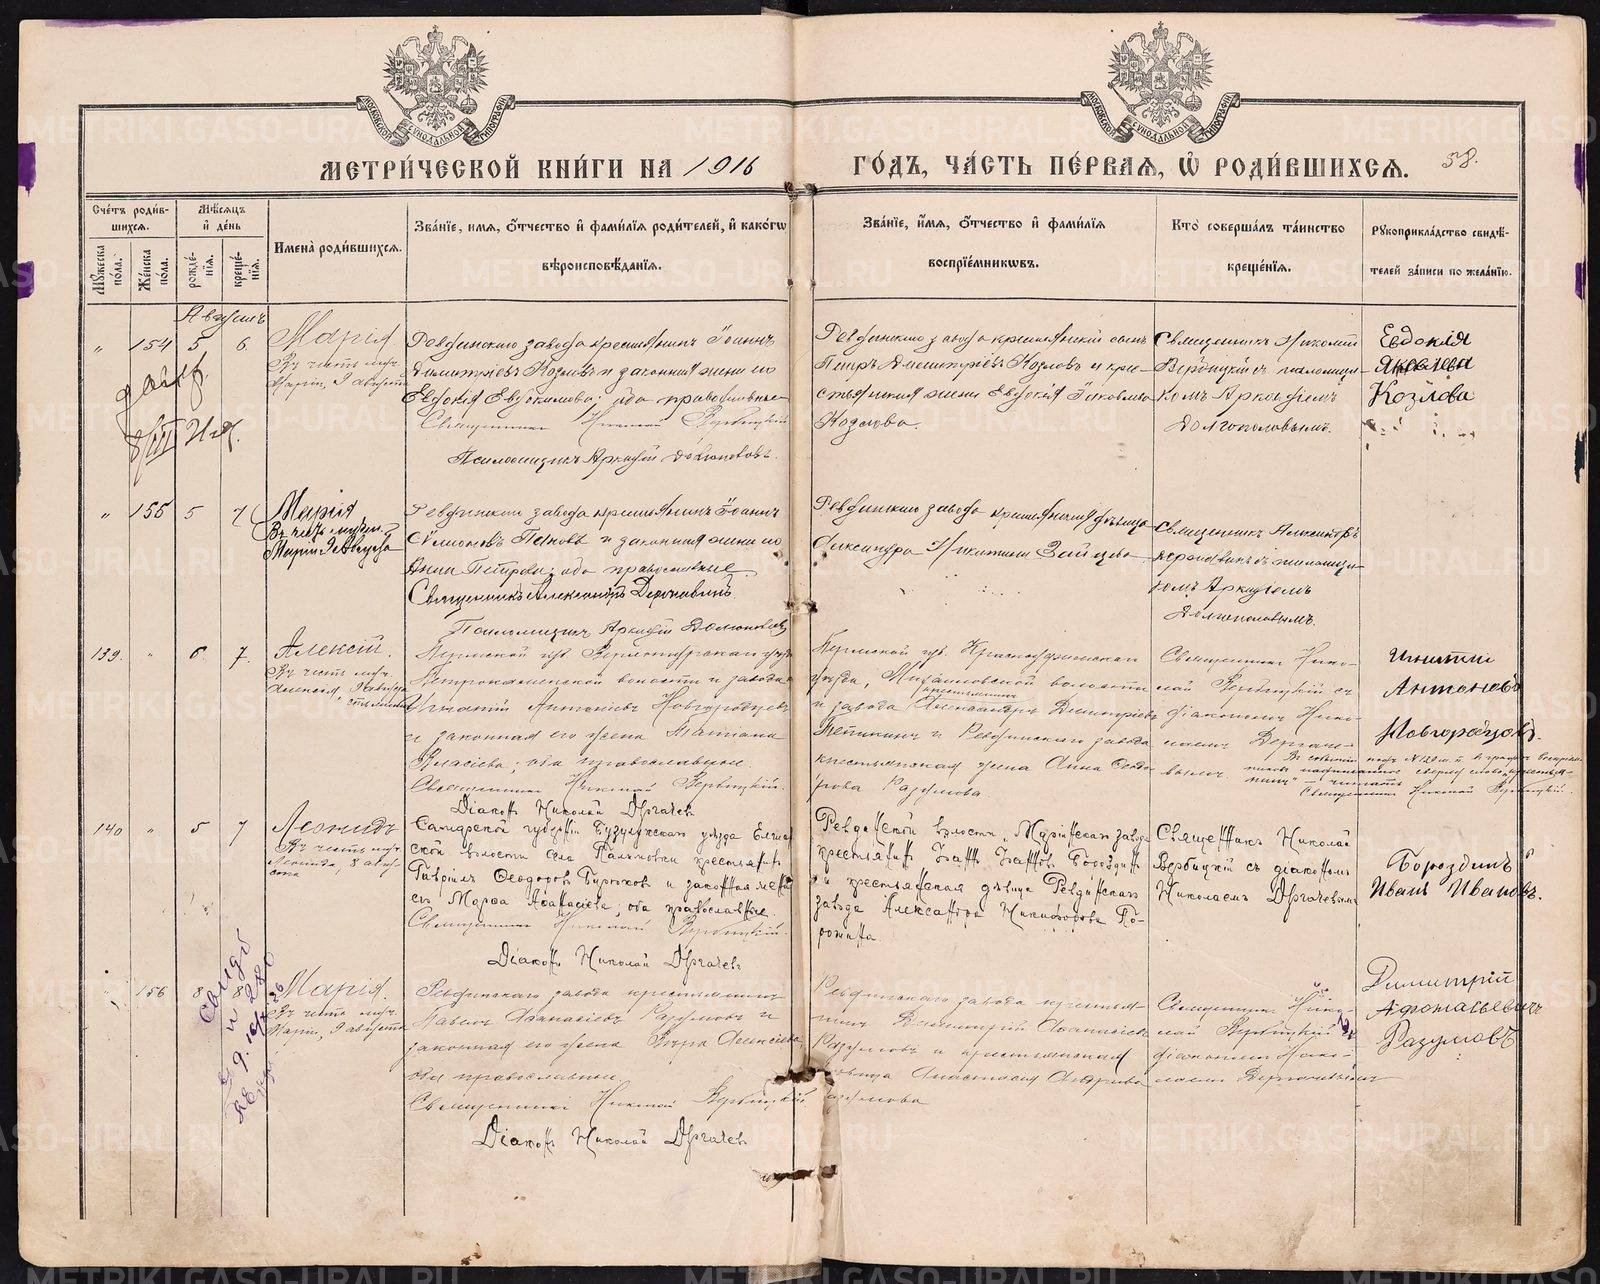 МЕТРИ́ЧЕСКОЙ КНИ́ГИ НА 1916
ГО́ДЪ, ЧА́СТЬ ПЕ́РВАЯ, Ѡ҆ РОДИ́ВШИХСЯ. 58.
Сче́тъ роди́в-
шихся.
Мѣ́сяцъ
и҆ де́нь
Мꙋ́жеска
по́ла.
Же́нска
по́ла.
рожде́-
нїя.
креще́-
нїя.
Имена̀ роди́вшихся.
Зва́нїе, имя, ѻ҆́тчество и҆ фами́лїя роди́телей, и҆ како́гѡ
вѣроисповѣ́данїя.
Зва́нїе, и҆́мя, ѻ҆́тчество и҆ фами́лїя
воспрїе́мникѡвъ.
Кто̀ соверша́лъ та́инство
креще́нїя.
Рꙋкоприкла́дство свидѣ́-
телей за́писи по жела́нїю.
Августъ
" 154 5 6.
Марія.
Въ честь муч.
Маріи, 9 августа
Ревдинскаго завода крестьянинъ Іоаннъ
Димитріевъ Козловъ и законная жена его
Евдокія Евдокимова; оба православные
Священникъ Николай Вербицкій
Псаломщикъ Аркадій Долгополовъ.
Ревдинскаго завода крестьянскій сынъ
Петръ Димитріевъ Козловъ и кре-
стьянская жена Евдокія Іаковлева
Козлова.
Священникъ Николай
Вербицкій съ псаломщи-
комъ Аркадіемъ
Долгополовымъ.
Евдокія
Яковлева
Козлова
" 155 5 7
Марія
Въ честь мучен.
Маріи 9 Августа
Ревдинскаго завода крестьянинъ Іоаннъ
и законная жена его
Анна Петрова; оба православные.
Священникъ Александръ Державинъ
Псаломщикъ Аркадій Долгополовъ
Ревдинскаго завода крестьянская дѣвица
Александра Никитина Зайцева.
Священникъ Александръ
Державинъ съ псаломщи-
комъ Аркадіемъ
Долгополовымъ.
139. " 6. 7.
Алексій.
Въ честь муч.
Алексія, 9 августа
Пермской губ. Верхотурскаго уѣзда
Петрокаменской волости и завода
Игнатій Антоніевъ Новгородцевъ
и законная его жена Татіана
Власіева; оба православные.
Священникъ Николай Вербицкій.
Діаконъ Николай Дергачевъ
Пермской губ. Красноуфимскаго
уѣзда, Михайловской волости
и завода крестьянинъ Александръ Димитріевъ
и Ревдинскаго завода
крестьянская жена Анна Ѳеодо-
рова Разумова.
Священникъ Нико-
лай Вербицкій съ
діакономъ Нико-
лаемъ Дергаче-
вымъ.
Игнатій
Антоновъ
Новгородцовъ.
Священникъ Николай Вербицкій.
140 " 5 7
Леонидъ
Въ честь муч.
Леонида, 8 авгу-
ста
Самарской губерніи Бузулукскаго уѣзда
волости села крестьянинъ
Гавріилъ Ѳеодоровъ Бирюковъ и законная жена
его Марѳа Аѳанасіева; оба православные.
Священникъ Николай Вербицкій.
Діаконъ Николай Дергачевъ
Ревдинской волости, Маріинскаго завода
крестьянинъ Іоаннъ Іоанновъ Бороздинъ
и крестьянская дѣвица Ревдинскаго
завода Александра Никифорова По-
Священникъ Николай
Вербицкій съ діакономъ
Николаемъ Дергачевымъ
Бороздинъ
Иванъ Ивановъ.
" 156 8 8
Марія.
Въ честь муч.
Маріи, 9 августа
Ревдинскаго завода крестьянинъ
Павелъ Аѳанасіевъ Разумовъ и
законная его жена Вѣра Алексіева
оба православные.
Священникъ Николай Вербицкій
Діаконъ Николай Дергачевъ
Ревдинскаго завода крестья-
нинъ Димитрій Аѳанасіевъ
Разумовъ и крестьянская
дѣвица Анастасія Андреева
Разумова
Священникъ Нико-
лай Вербицкій съ
діакономъ Нико-
лаемъ Дергачевымъ
Димитрій
Афонасьевичъ
Разумовъ
METRIKI.GASO-URAL.RU